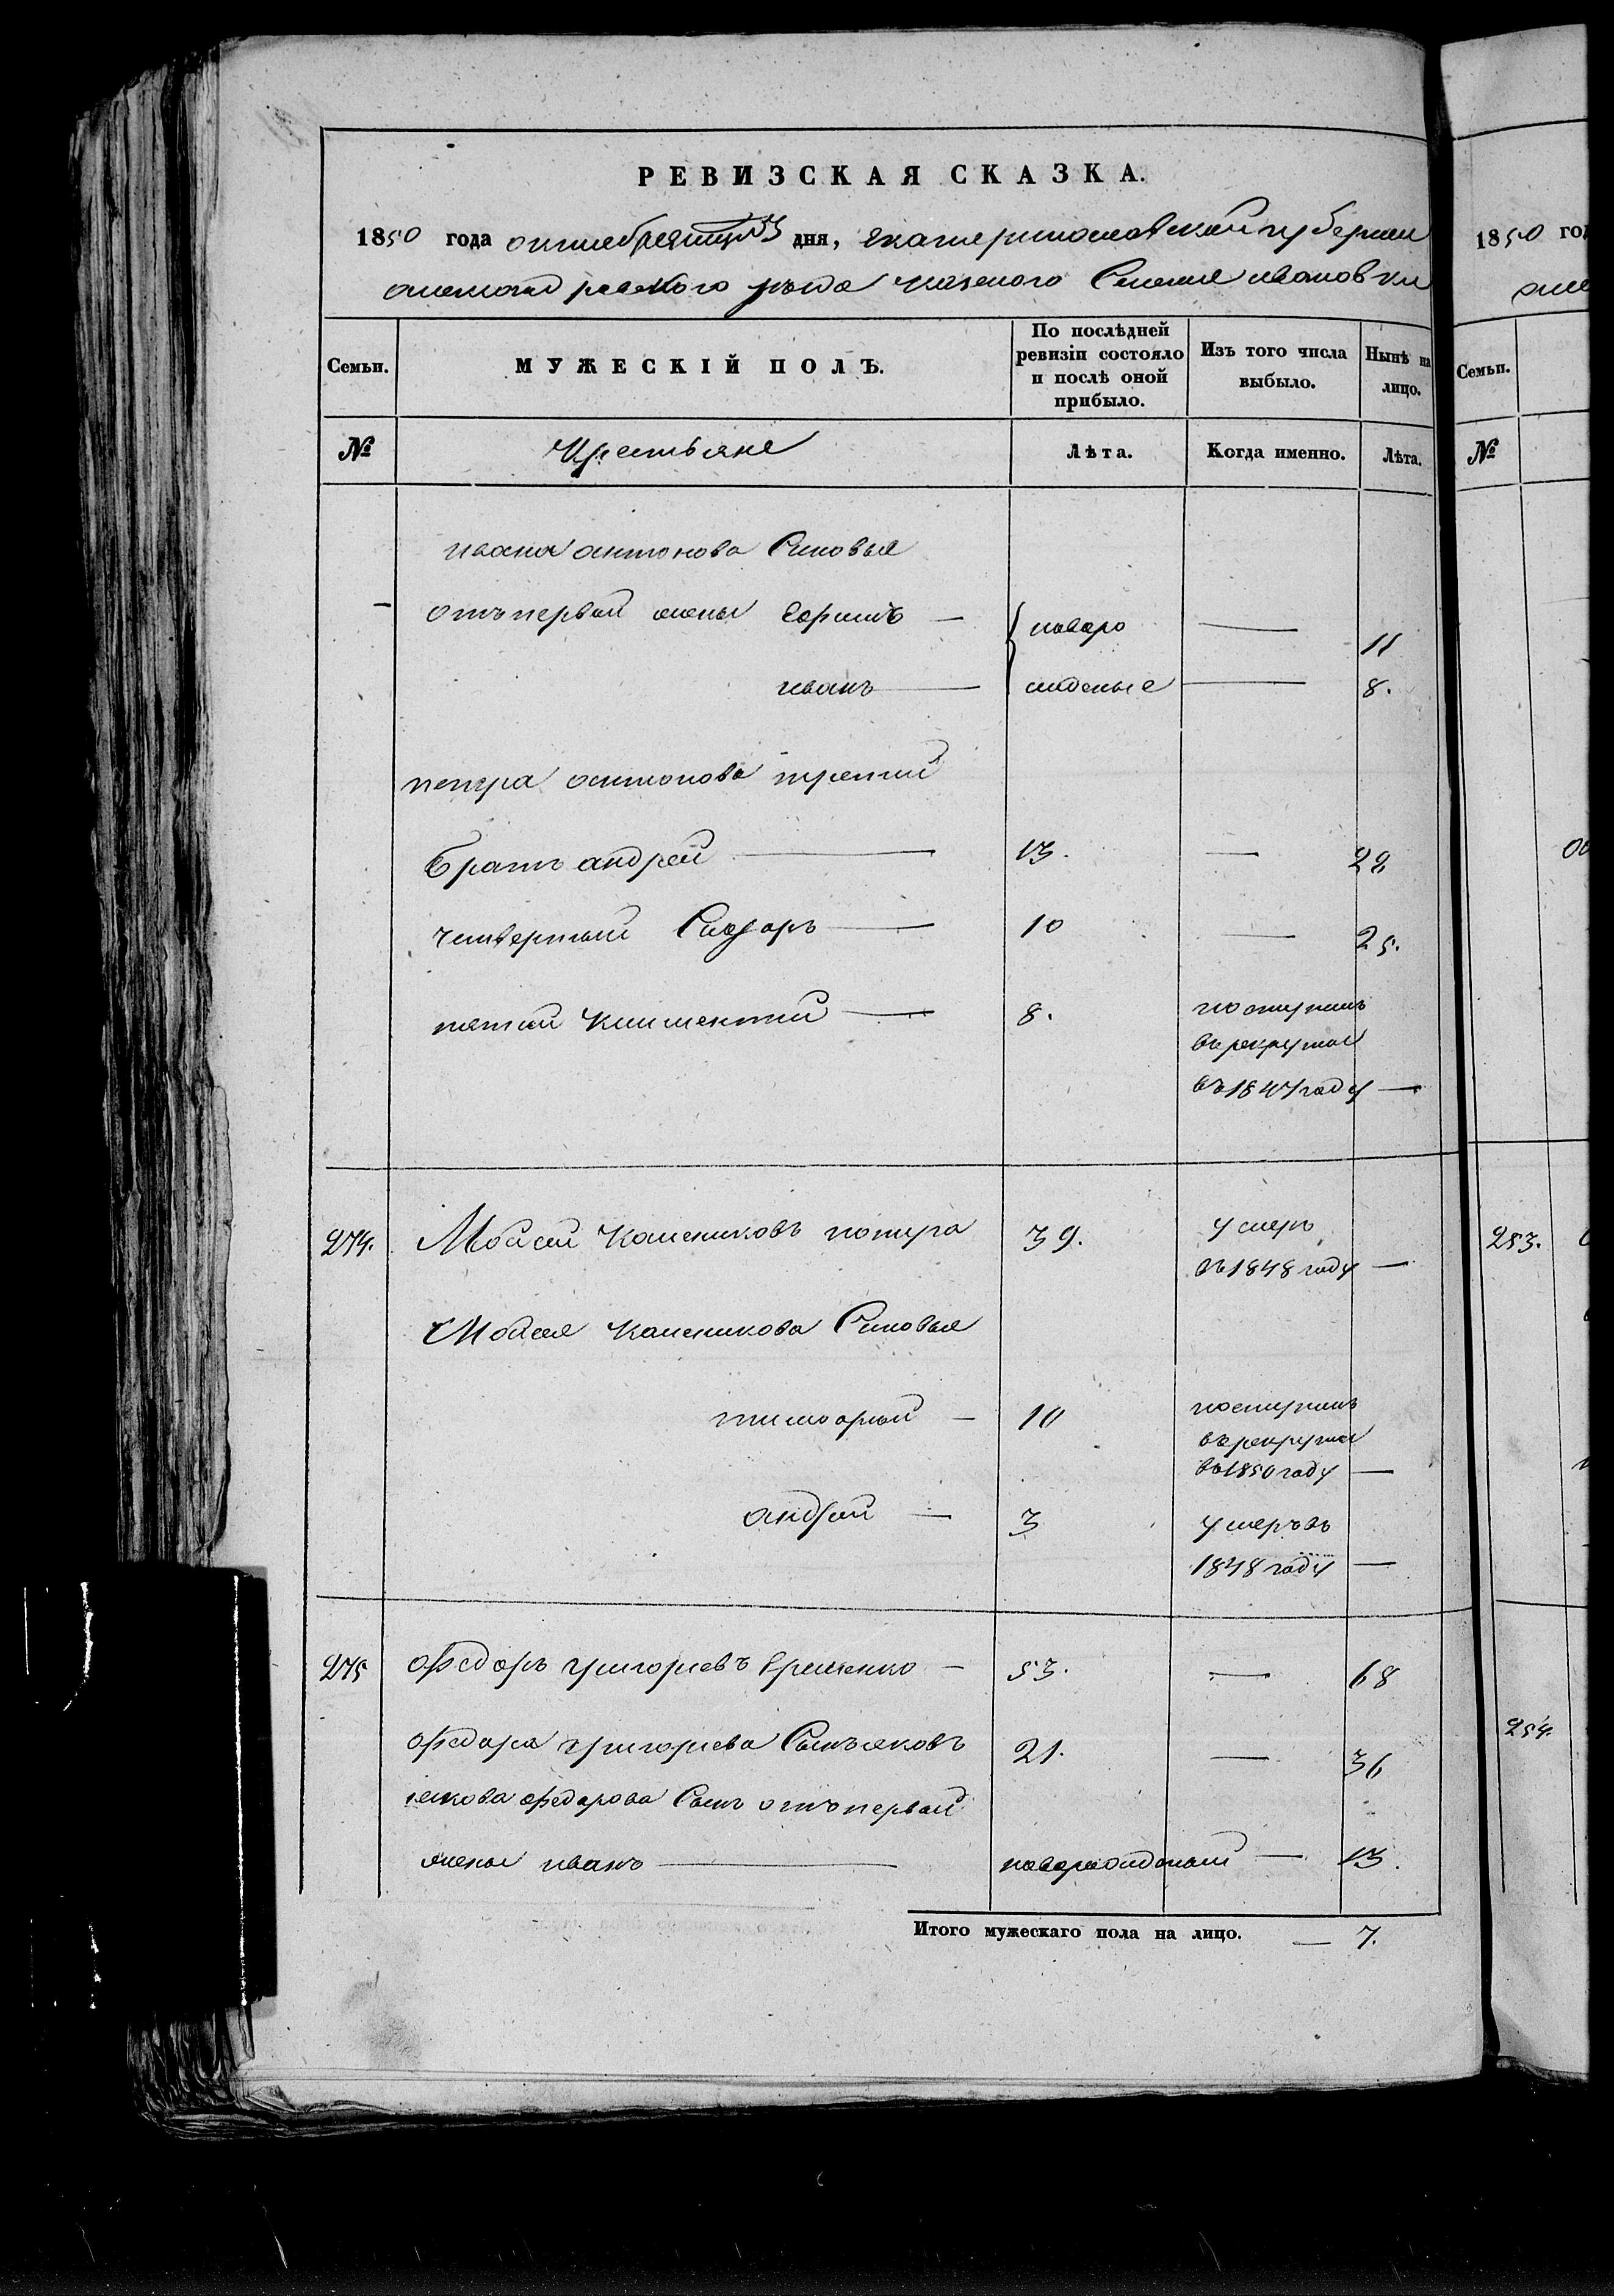 РЕВИЗСКАЯ СКАЗКА.
1850 года октебря дня, екатеринославской губернии
александровского уезда казеного Селения ивановки
Семьи. МУЖЕСКІЙ ПОЛЪ. По послѣдней ревизіи состояло и послѣ оной прибыло. Изъ того числа выбыло. Нынѣ на лицо.
№ Крестьяне Лѣта. Когда именно. Лѣта.
ивана антонова Синовья
отъ первой жены — новоро — 11
иванъ — жденые — 8.
петра антонова третий
братъ андрей — 13. — 28
четвертый Сидоръ — 10 — 25.
пятый климентий — 8. поступилъ
в рекруты
въ 1847 году —
274. Моисей Калениковъ потира 39. умеръ
въ 1848 году —
Моисея Каленикова Синовья
тимофей — 10 поступилъ
в рекруты
въ 1850 году —
андрей — 3 умеръ въ
1848 году —
275 федоръ григориевъ Еременко — 53. — 68
федора григориева Сынъ яковъ 21. — 36
якова федорова Сынъ отъ первой
жены иванъ — новорожденый — 13.
Итого мужескаго пола на лицо. — 7.
1850 год
Семьи.
№
253.
254.